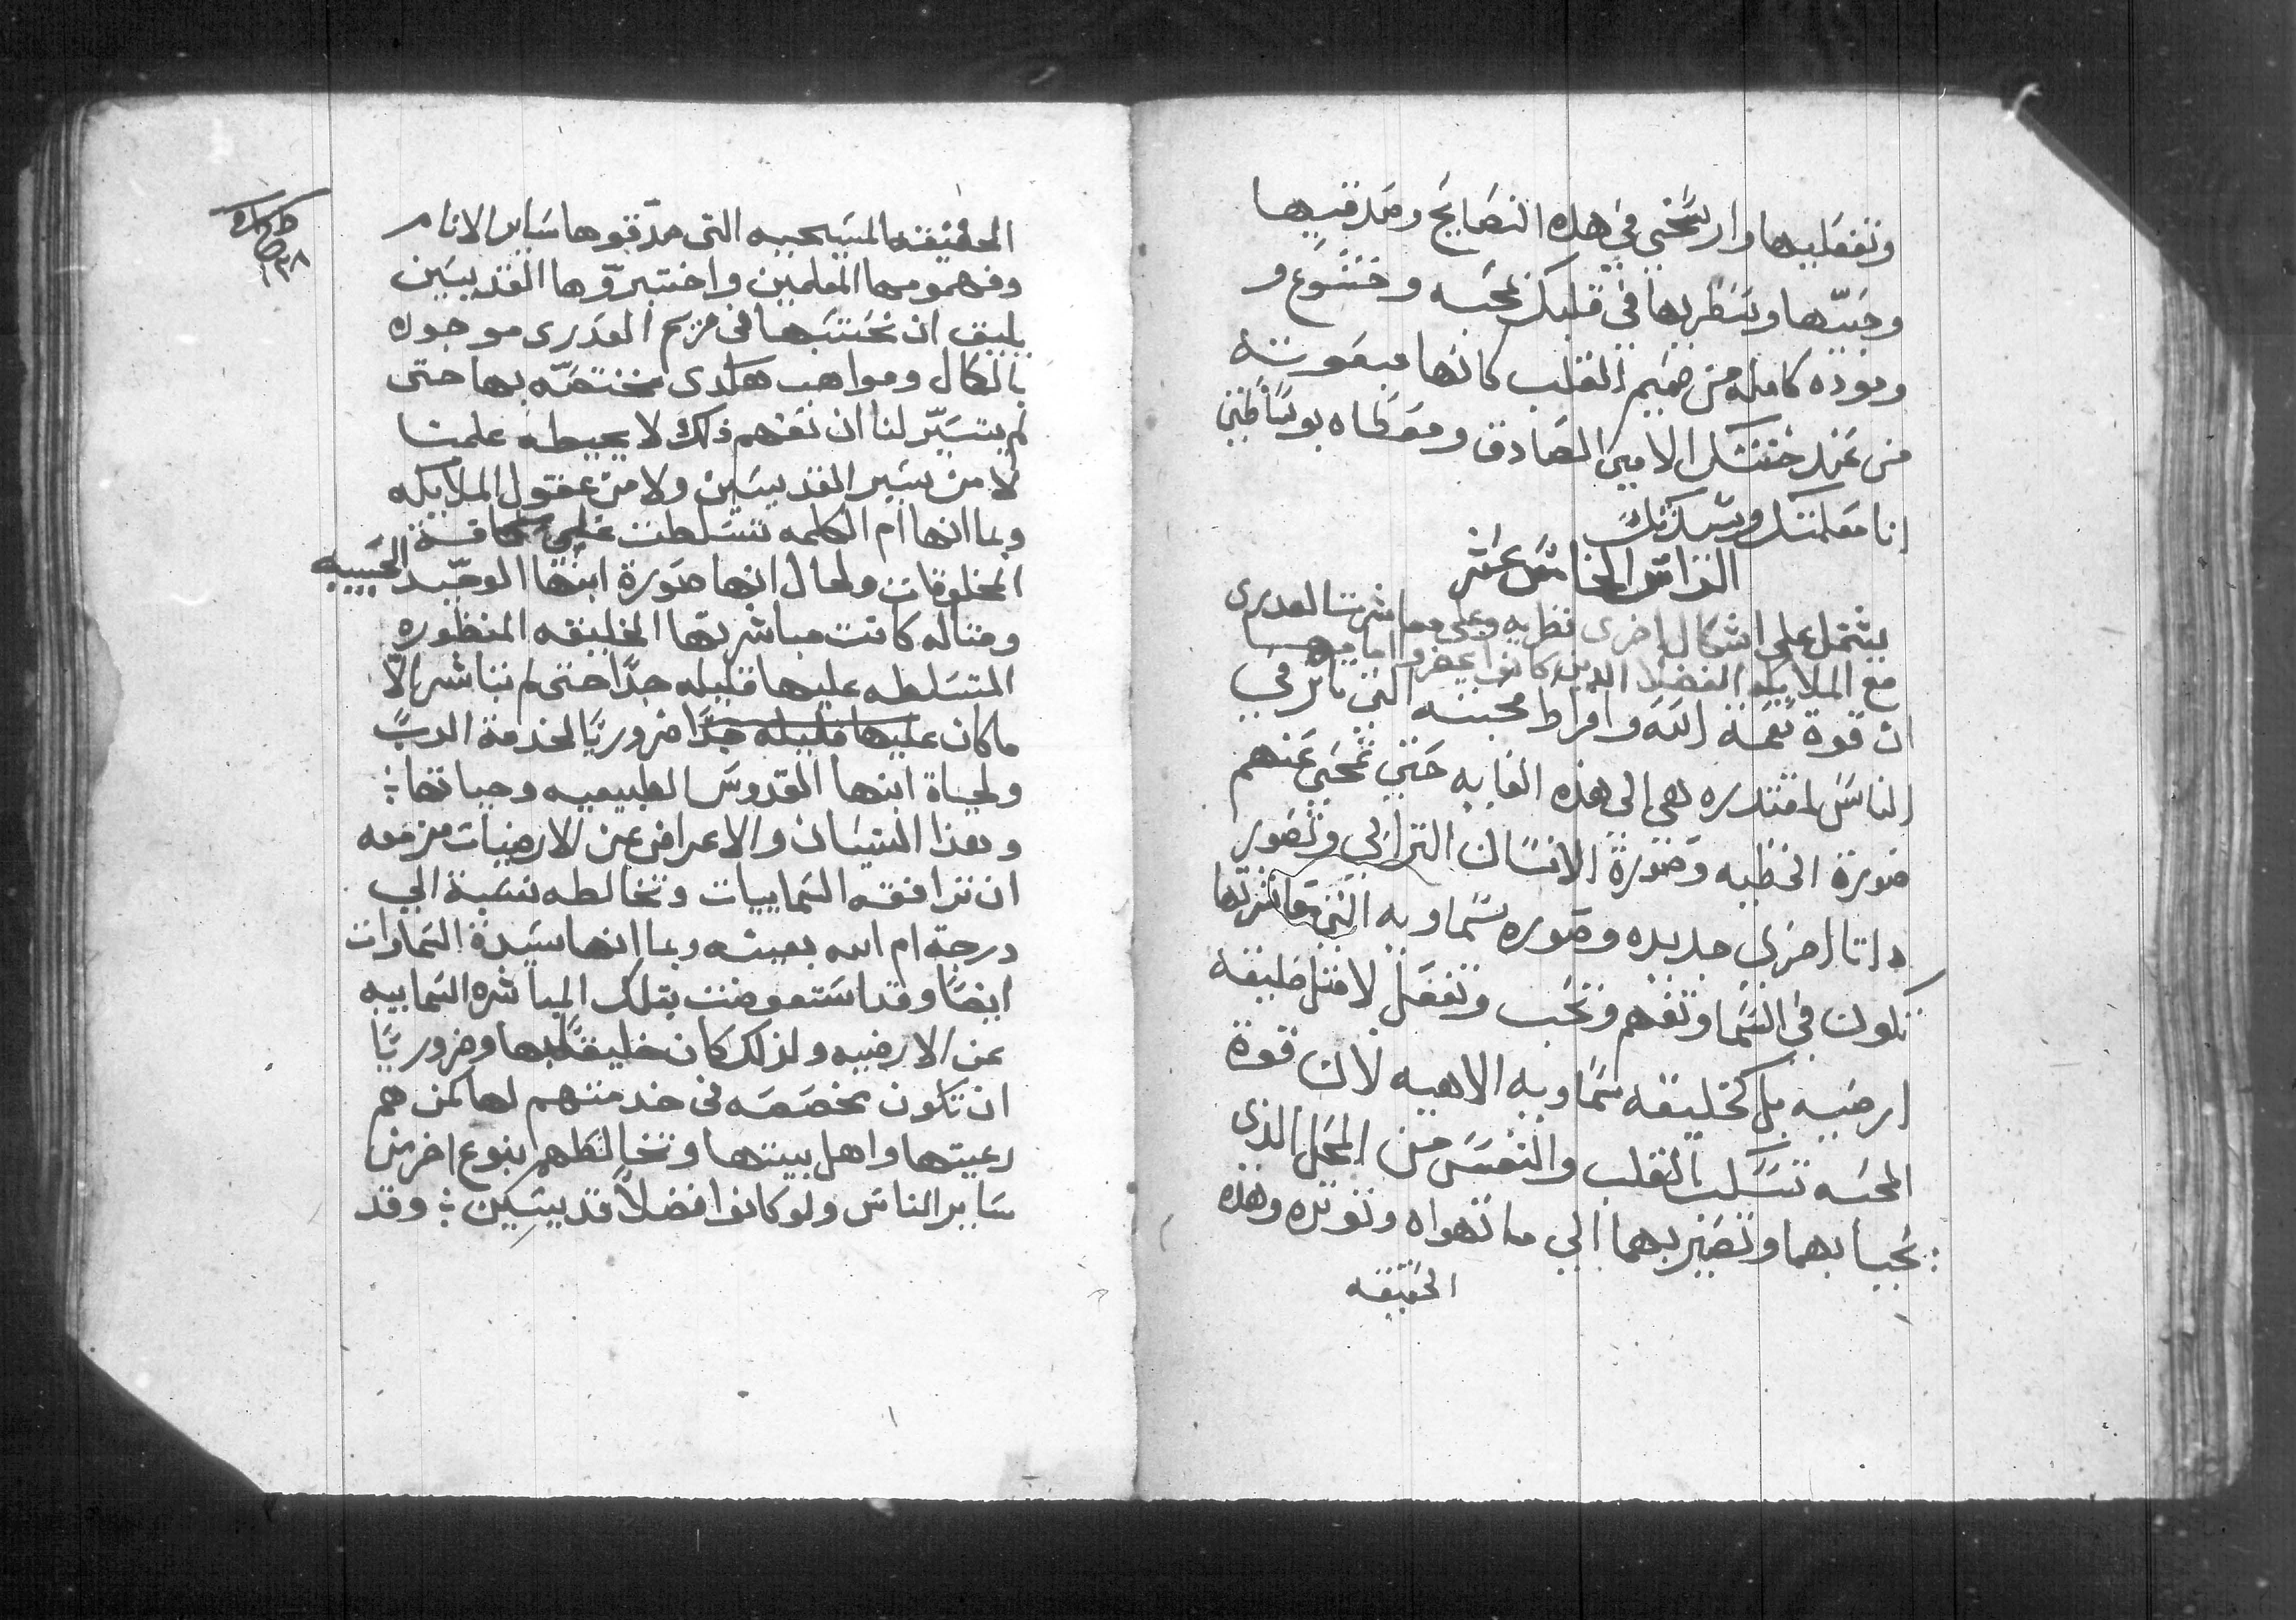 وتفعليها وارسخي في هذه النصايح وصدقيها
وحبيها وتنظريها في قلبك بمحبه وخشوع و
وموده كامله من صميم القلب كانها مبعوثه
من عند ختنك الامين الصادق ومعطاه بوساطتي
انا معلمتك وسيدتك
الراس الخامس عشر
يشتمل على اشكال اخرى نظريه وعلى معاشرت العدرى
مع الملايكه الفضلا الدين كانوا يحضروا امامها
ان قوة نعمة الله وافراط محبته التي تاثر في
الناس لمقتدره هي الى هذه الغايه حتي تمحي عنهم
صورة الخطيه وصورة الانسان الترابي وتصور
داتا اخرى جديده وصوره سماويه التي معاشرتها
تكون في السما وتفهم وتحب وتفعل لا مثل خليقه
ارضيه بل كخليقه سماويه الاهيه لان قوة
المحبه تسلب القلب والنفس من المحل الذى
يحيا بهما وتصير بهما الي ما تهواه وتوثره وهذه
الحقيقه
الحقيقه المسيحييه التى صدّقوها ساير الانام
وفهموها المعلمين واختبروّها القديسين
يليق ان نحتسبها فى مريم العدرى موجوده
بالكمال ومواهب هكدى مختصّه بها حتى
لم يتسيّر لنا ان نفهم ذلك لا يحيطه علمنا
لا من سير القديسين ولا من عقول الملايكه
وبما انها ام الكلمه تسلطت على كافة
المخلوقات ولحال انها صورة ابنها الوحيد الحبيبه
ومثاله كانت مباشرتها الخليقه المنظوره
المتسلطه عليها قليله جدّا حتى لم تباشر الّا
ما كان عليها قليله جدًا ضروريًا لخدمة الربّ
ولحياة ابنها القدوس الطبيعيه وحياتها ؛
وبعد النسيان والاعراض عن الارضيات مزمعه
ان ترافقه السماييات وتخالطه نسبة الي
درجة ام الله بعينه وبما انها سيدة السماوات
ايضًا وقد استعوضت بتلك المباشره السماييه
عن الارضيه ولذلك كان خليقًا بها وضروريًا
ان تكون مخصصه فى خدمتهم لها كمن هم
رعيتها واهل بيتها وتخالطهم بنوع اخر من
ساير الناس ولو كانوا افضلًا قديسين ؛ وقد